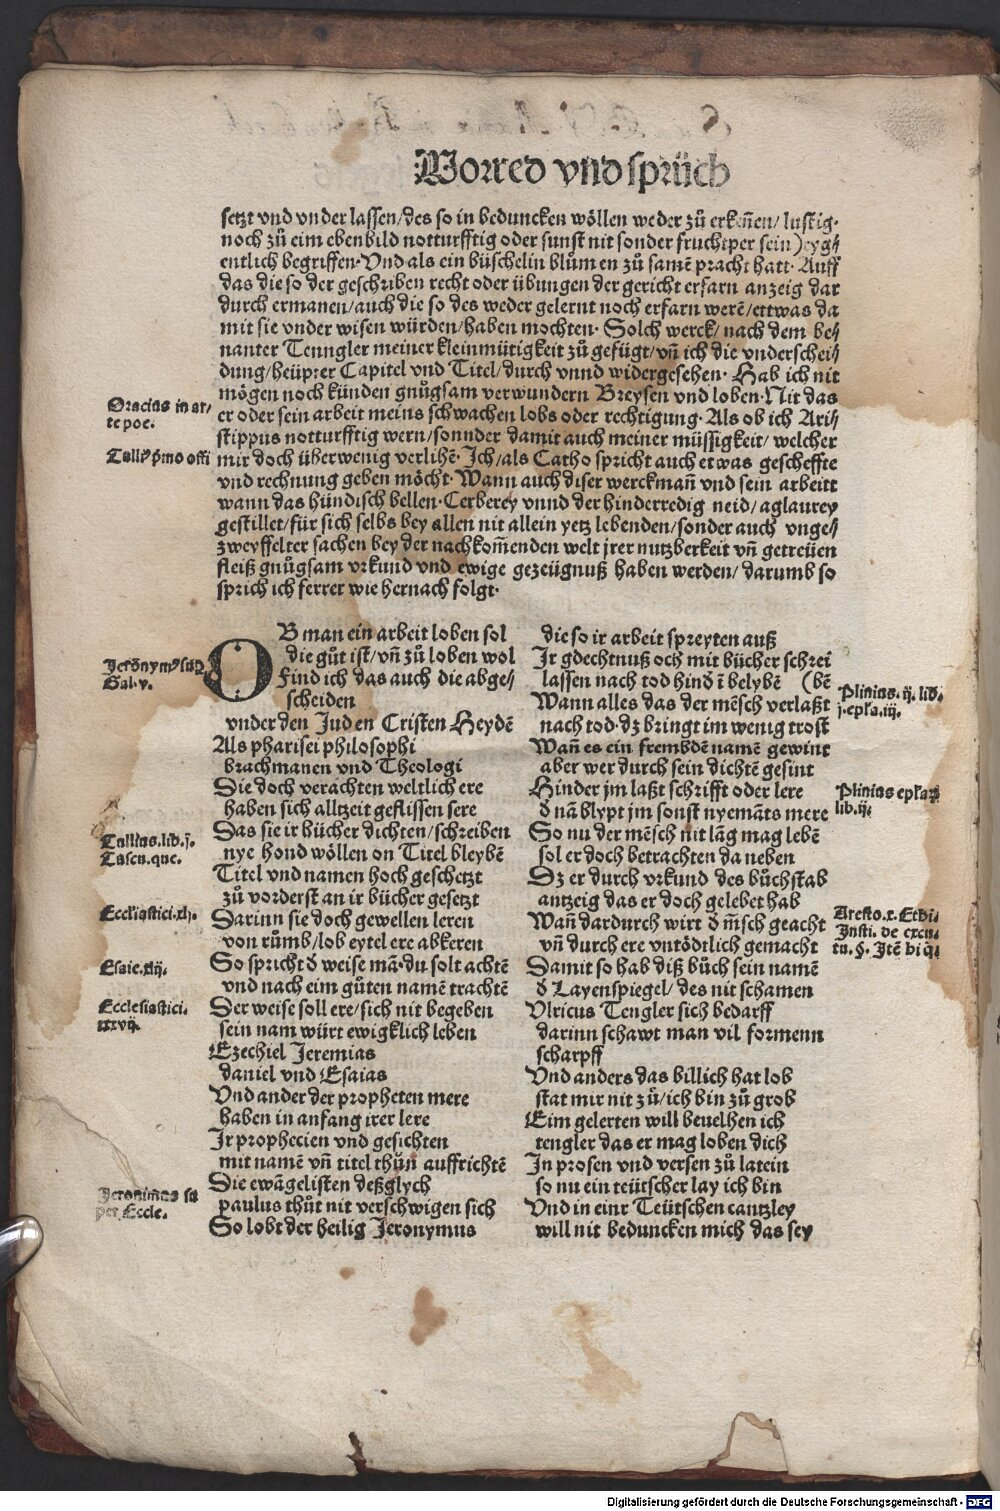 Vorred vnd sprüch
setzt vnd vnder lassen/des so in beduncken wöllen weder zů erkeñen/ lustig·
noch zů eim ebenbild notturfftig oder sunst nit sonder fruchtper sein) eyg⸗
entlich begriffen· Vnd als ein büschelin blůmen zů samē pracht hatt· Auff
das die so der geschriben recht oder übungen der gericht erfarn anzeig dar
durch ermanen/auch die so des weder gelernt noch erfarn werē/ettwas da
mit sie vnder wisen würden/haben mochten· Solch werck/ nach dem be⸗
nanter Tenngler meiner kleinmütigkeit zů gefügt/vñ ich die vnderschei⸗
dung/heüpter Capitel vnd Titel/durch vnnd widergesehen· Hab ich nit
mögen noch künden gnůgsam verwundern Breysen vnd loben· Nit das
er oder sein arbeit meins schwachen lobs oder rechtigung· Als ob ich Ari⸗
stippus notturfftig wern/sonnder damit auch meiner müssigkeit/ welcher
mir doch überwenig verlihē· Ich/als Catho spricht auch etwas gescheffte
vnd rechnung geben möcht· Wann auch diser werckmañ vnd sein arbeitt
wann das hündisch bellen· Cerberey vnnd der hinderredig neid/aglaurey
gestillet/für sich selbs bey allen nit allein yetz lebenden/sonder auch vnge⸗
zweyffelter sachen bey der nachkom̃enden welt jrer nutzberkeit vñ getreüen
fleiß gnůgsam vrkund vnd ewige gezeügnuß haben werden/ darumb so
sprich ich ferrer wie hernach folgt·
Oracius in ar⸗
te poe.
OB man ein arbeit loben sol
die gůt ist/vñ zů loben wol
Find ich das auch die abge⸗
scheiden
vnder den Juden Cristen Heydē
Als pharisei philosophi
brachmanen vnd Theologi
Die doch verachten weltlich ere
haben sich alltzeit geflissen sere
Das sie ir bücher dichten/schreiben
nye hond wöllen on Titel bleybē
Titel vnd namen hoch geschetzt
zů vorderst an ir bücher gesetzt
Darinn sie doch gewellen leren
von růmb/lob eytel ere abkeren
So spricht ð weise mā·du solt achtē
vnd nach eim gůten namē trachtē
Der weise soll ere/sich nit begeben
sein nam würt ewigklich leben
Ezechiel Jeremias
daniel vnd Esaias
Vnd ander der propheten mere
haben in anfang irer lere
Ir prophecien vnd gesichten
mit namē vñ titel thůn auffrichtē
Die ewāgelisten deßglych
paulus thůt nit verschwigen sich
So lobt der heilig Jeronymus
Gal·v.
Tullius.lib.j.
Tuscu.que.
Eccl'iastici.xlj.
Esaie.xlij.
Ecclesiastici.
Jeronimus su
per Eccle.
die so ir arbeit spreyten auß
Ir gdechtnuß och mit bücher schrei
lassen nach tod hind ī belybē (bē
Wann alles das der mēsch verlaßt
nach tod·dz bringt im wenig trost
Wañ es ein frembdē namē gewint
aber wer durch sein dichtē gesint
Hinder jm laßt schrifft oder lere
ð nā blypt jm sonst nyemāts mere
So nu der mēsch nit lāg mag lebē
sol er doch betrachten da neben
Dz er durch vrkund des bůchstab
antzeig das er doch gelebet hab
Wañ dardurch wirt ð m̃sch geacht
vñ durch ere vntödtlich gemacht
Damit so hab diß bůch sein namē
ð Layenspiegel/des nit schamen
Vlricus Tengler sich bedarff
darinn schawt man vil formenn
scharpff
Vnd anders das billich hat lob
stat mir nit zů/ich bin zů grob
Eim gelerten will beuelhen ich
tengler das er mag loben dich
In prosen vnd versen zů latein
so nu ein teütscher lay ich bin
Vnd in einr Teütschen cantzley
will nit beduncken mich das sey
Plinius. ij. lib.
j.epl'a.iij.
Plinius epl'arꝫ
lib.ij.
Aresto.x. Ethi.
Insti. de excu⸗
Digitalisierung gefördert durch die Deutsche Forschungsgemeinschaft - DFG